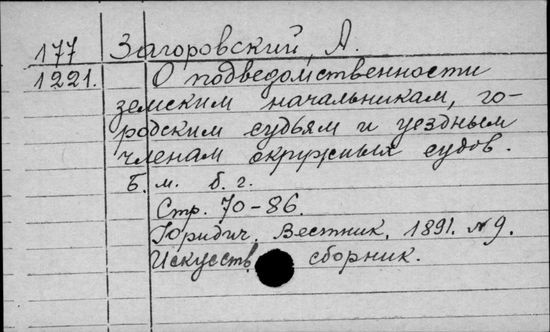 177 Загоровский, А.
1221. О подведомственности
земским начальникам, го-
родским судьям и уездным
членам окружных судов.
Б. м. б. г.
Стр. 70-86.
Юридич. Вестник. 1891. №9.
Искусств. сборник.